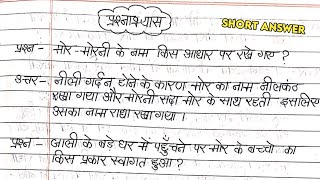 प्रश्नाभ्यास
SHORT ANSWER
प्रश्न- मोर-मोरनी के नाम किस आधार पर रखे गए ?
उत्तर- नीली गर्दन होने के कारण मोर का नाम नीलकंठ
रखा गया और मोरनी सदा मोर के साथ रहती इसलिए
उसका नाम राधा रखा गया ।
प्रश्न - जाली के बड़े घर में पहुँचने पर मोर के बच्चो का
किस प्रकार स्वागत हुआ ?